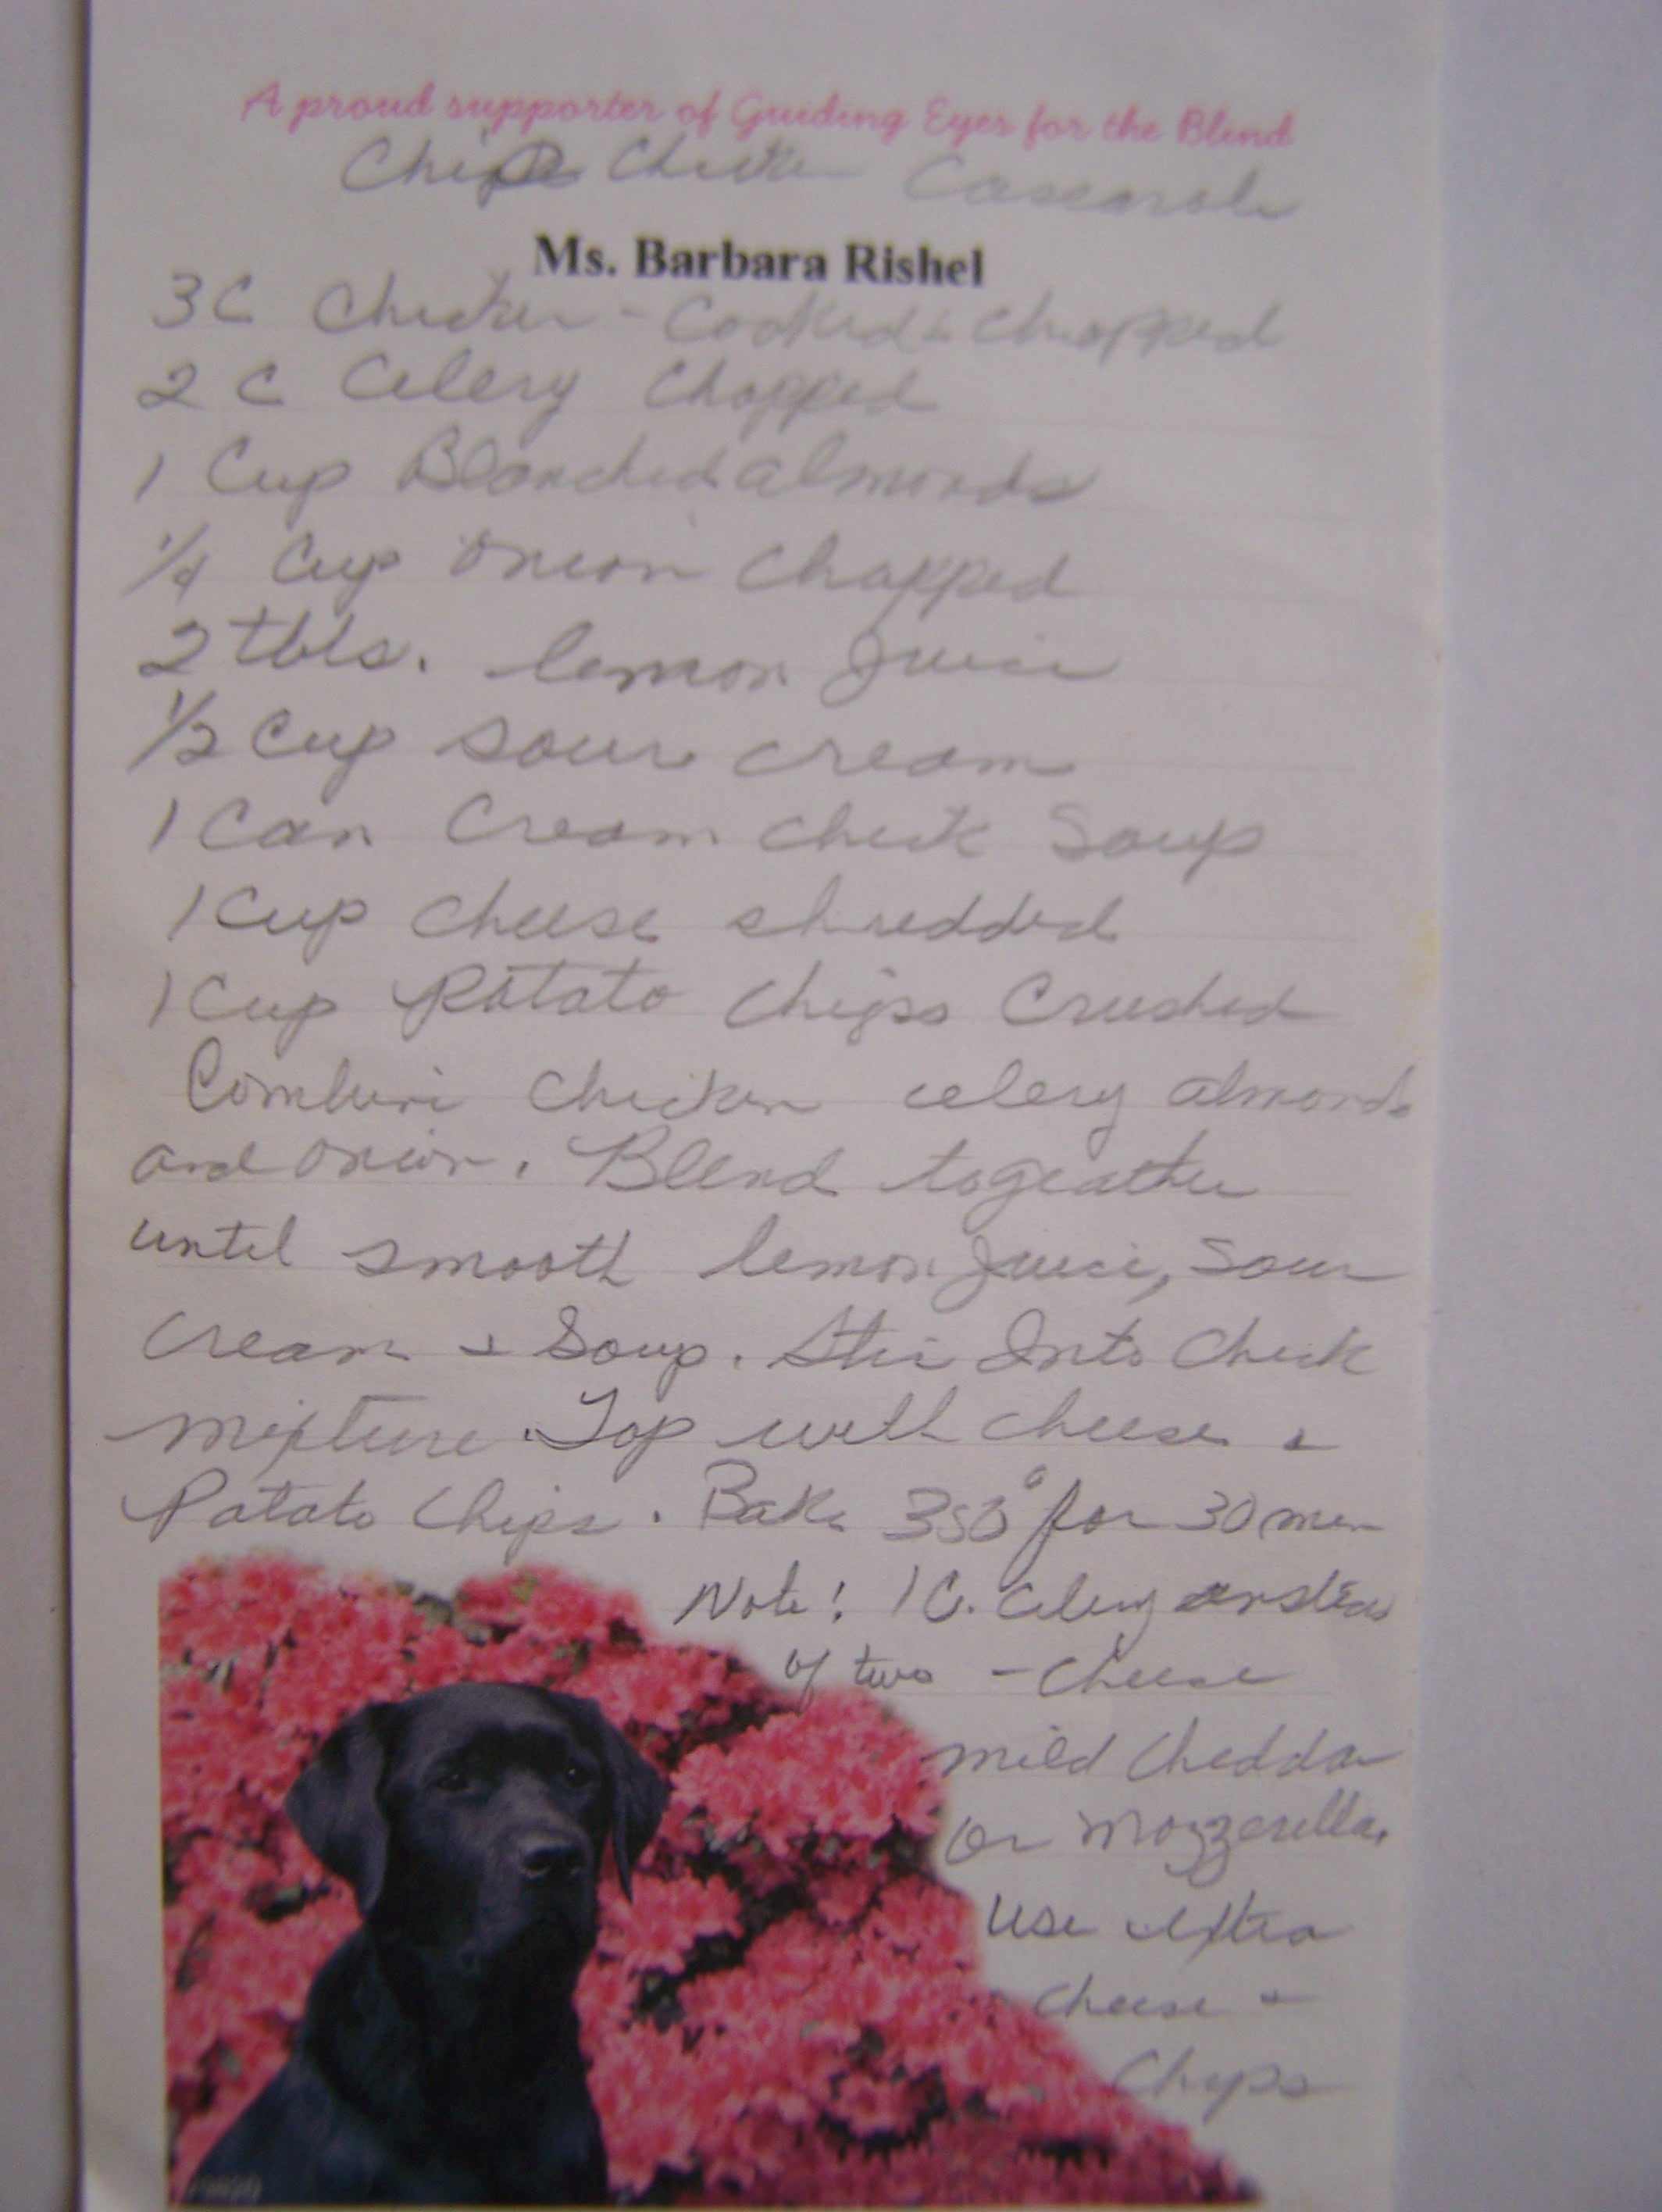 A proud supporter of Guiding Eyes for the Blind
Chip Chicken Casserole
Ms. Barbara Rishel
3 C Chicken - Cooked & Chopped
2 C Celery Chopped
1 Cup Blanched almonds
1/4 Cup Onion Chopped
2 tbls. lemon Juice
1/2 Cup sour cream
1 Can Cream Chick Soup
1 Cup cheese shredded
1 Cup Potato Chips Crushed
Combine Chicken celery almonds
and onion. Blend togeather
until smooth lemon Juice, Sour
Cream & Soup. Stir Into Chick
mixture. Top with cheese &
Potato Chips. Bake 350° for 30 min
Note! 1 C. Celery instead
of two - Cheese
mild Chedda
or Mozzerella.
Use extra
cheese &
Chips